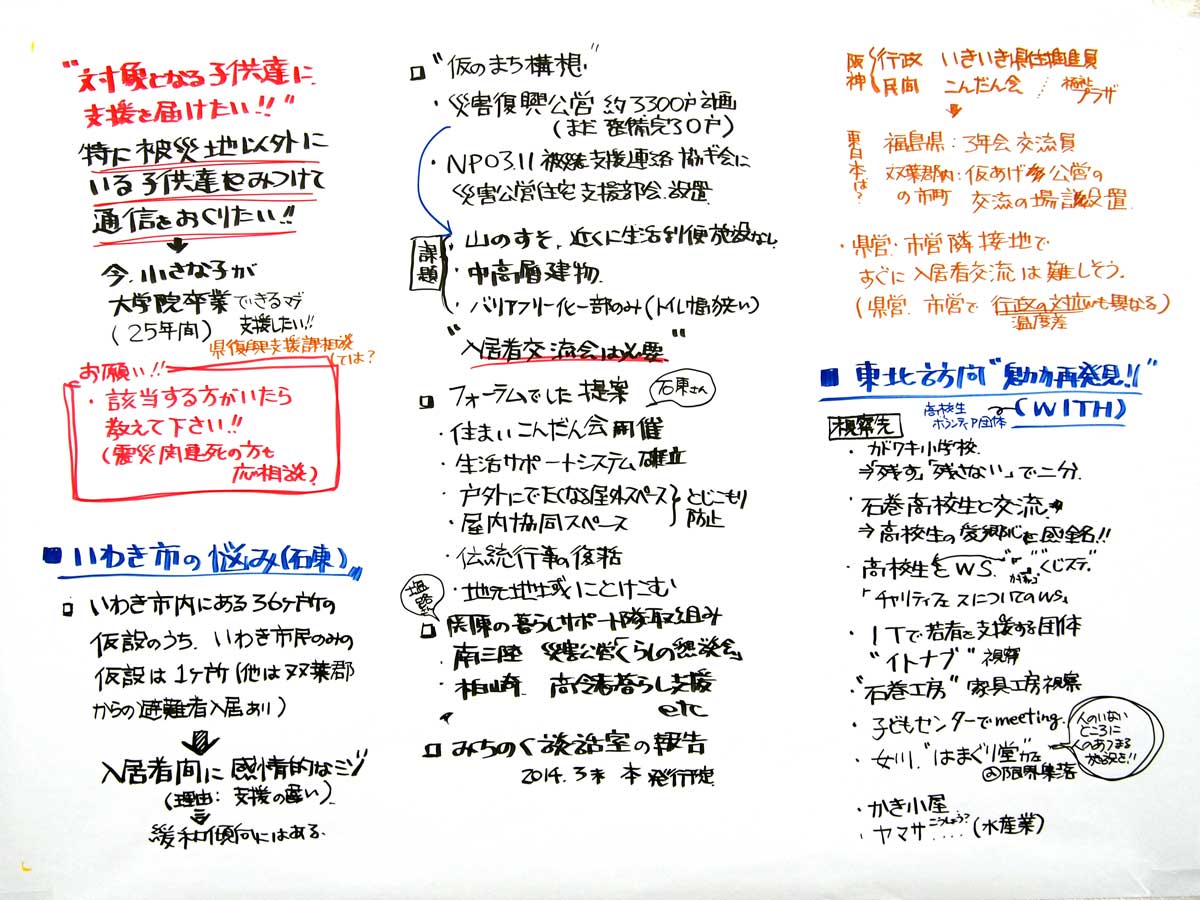 "対象となる子供達に
支援を届けたい!!"
特に被災地以外に
いる子供達をみつけて
通信をおくりたい!!
↓
今、小さな子が
大学院卒業できるマデ
(25年間) 支援したい!!
県復興支援課相談
しては?
お願い!!
・該当する方がいたら
教えて下さい!!
(震災関連死の方も
応相談)
■ いわき市の悩み(石東)
□ いわき市内にある36ヶ所の
仮設のうち、いわき市民のみの
仮設は1ヶ所(他は双葉郡
からの避難者入居あり)
↓
入居者間に感情的なミゾ
(理由:支援の違い)
↓
緩和傾向にはある。
□ "仮のまち構想"
・災害復興公営 約3300戸計画
(まだ整備完30戸)
・NPO3.11被災者支援連絡協ギ会に
災害公営住宅支援部会設置
課題
・山のすそ、近くに生活利便施設なし
・中高層建物
・バリアフリー化一部のみ(トイレ幅狭い)
"入居者交流会は必要"
□ フォーラムでした提案 石東さん
・住まいこんだん会開催
・生活サポートシステム確立
・戸外にでたくなる屋外スペース
・屋内協同スペース
とじこもり
防止
・伝統行事の復活
・地元地域にとけこむ
□ 関東の暮らしサポート隊取組み
・南三陸 災害公営「くらしの懇談会」
・柏崎 高令者暮らし支援
etc
□ みちのく談話室の報告
2014.3末 本発行予定
阪神
行政 いきいき県住推進員
民間 こんだん会 … 福祉
プラザ
↓
東日本は?
福島県:3年会交流員
双葉郡内の市町:仮あげ多公営の
交流の場設置
・県営・市営隣接地で
すぐに入居者交流は難しそう。
(県営、市営で行政の対応も異なる)
温度差
■ 東北訪問"魅力再発見!"
高校生
ボランティア団体
(WITH)
視察先
・カドワキ小学校
⇒「残す」「残さない」で二分
・石巻高校生と交流
⇒高校生の愛郷心を感銘!!
・高校生とWS、"くじステ"
「チャリティフェスについてのWS」
・ITで若者を支援する団体
"イトナブ"視察
・"石巻工房"家具工房視察
・子どもセンターでmeeting
・女川"はまぐり堂"カフェ
@限界集落
人のいない
ところに
人のあつまる
施設を!!
・かき小屋
・ヤマサこうしょう?‥‥(水産業)